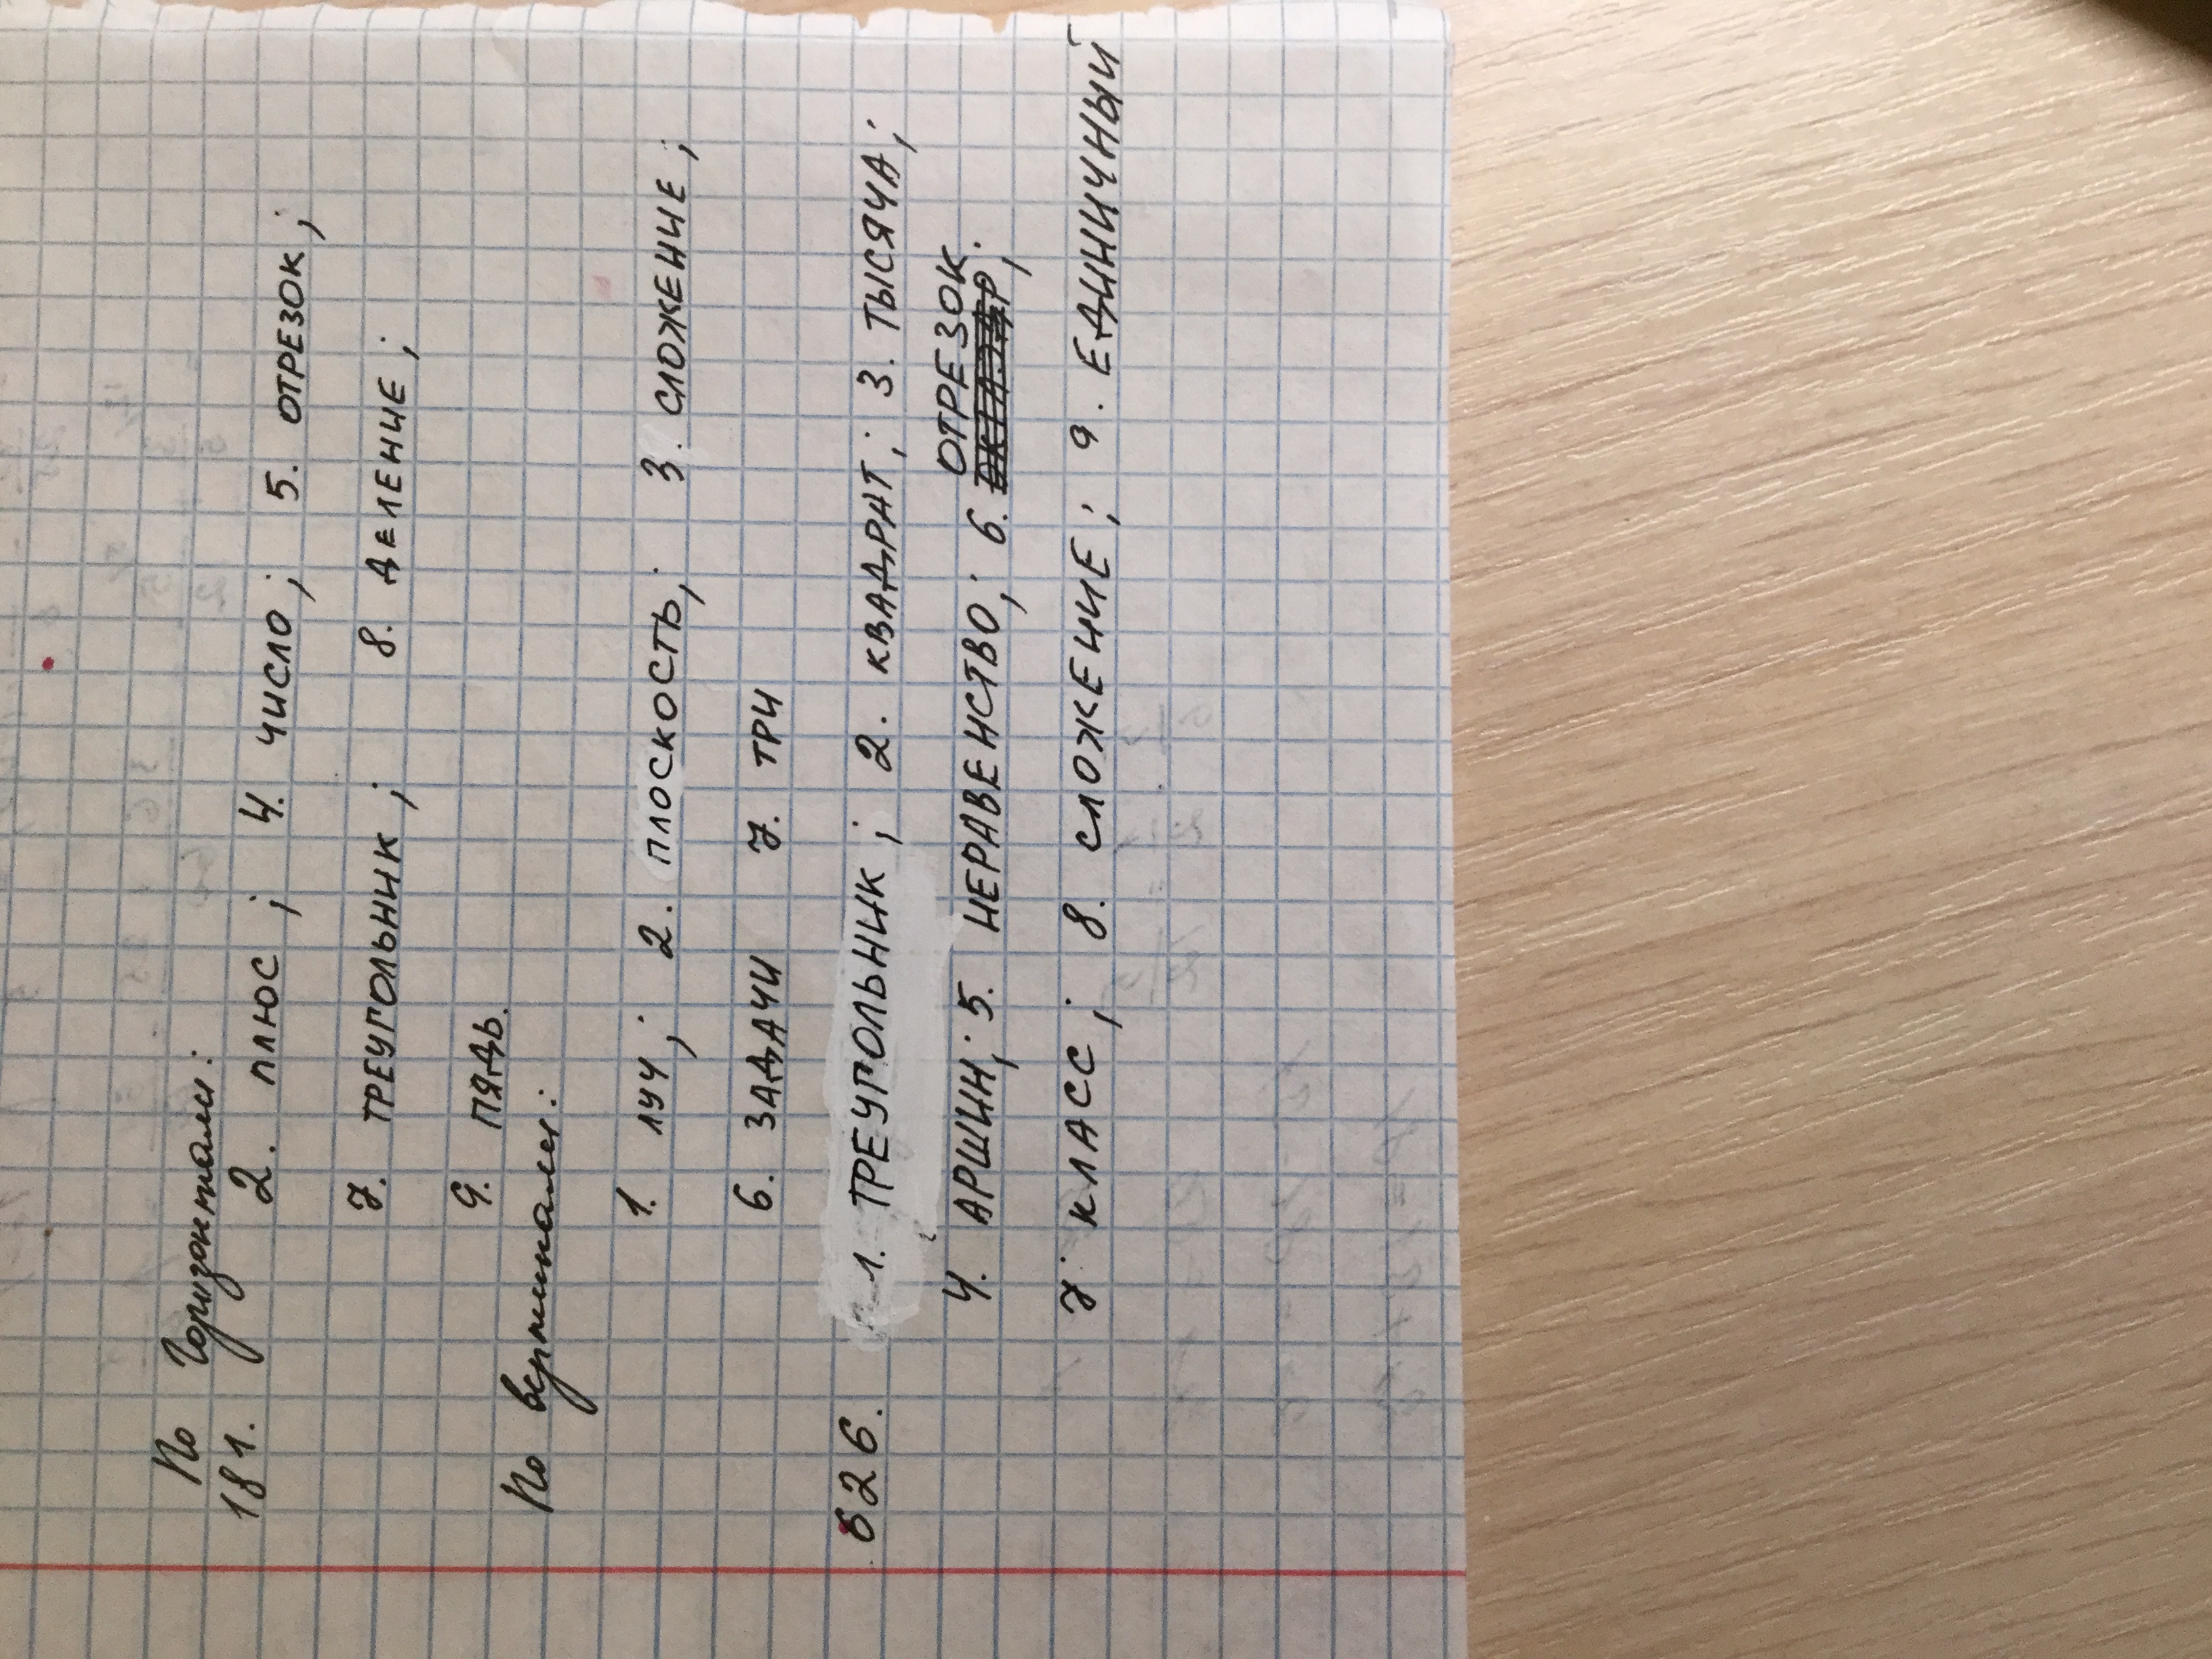 По горизонтали:
181. 2. ПЛЮС; 4. ЧИСЛО; 5. ОТРЕЗОК;
7. ТРЕУГОЛЬНИК; 8. ДЕЛЕНИЕ;
9. ПЯДЬ.
По вертикали:
1. ЛУЧ; 2. ПЛОСКОСТЬ; 3. СЛОЖЕНИЕ;
6. ЗАДАЧИ 7. ТРИ
626. 1. ТРЕУГОЛЬНИК; 2. КВАДРАТ; 3. ТЫСЯЧА;
4. АРШИН; 5. НЕРАВЕНСТВО; 6. ОТРЕЗОК.;
7. КЛАСС; 8. СЛОЖЕНИЕ; 9. ЕДИНИЧНЫЙ